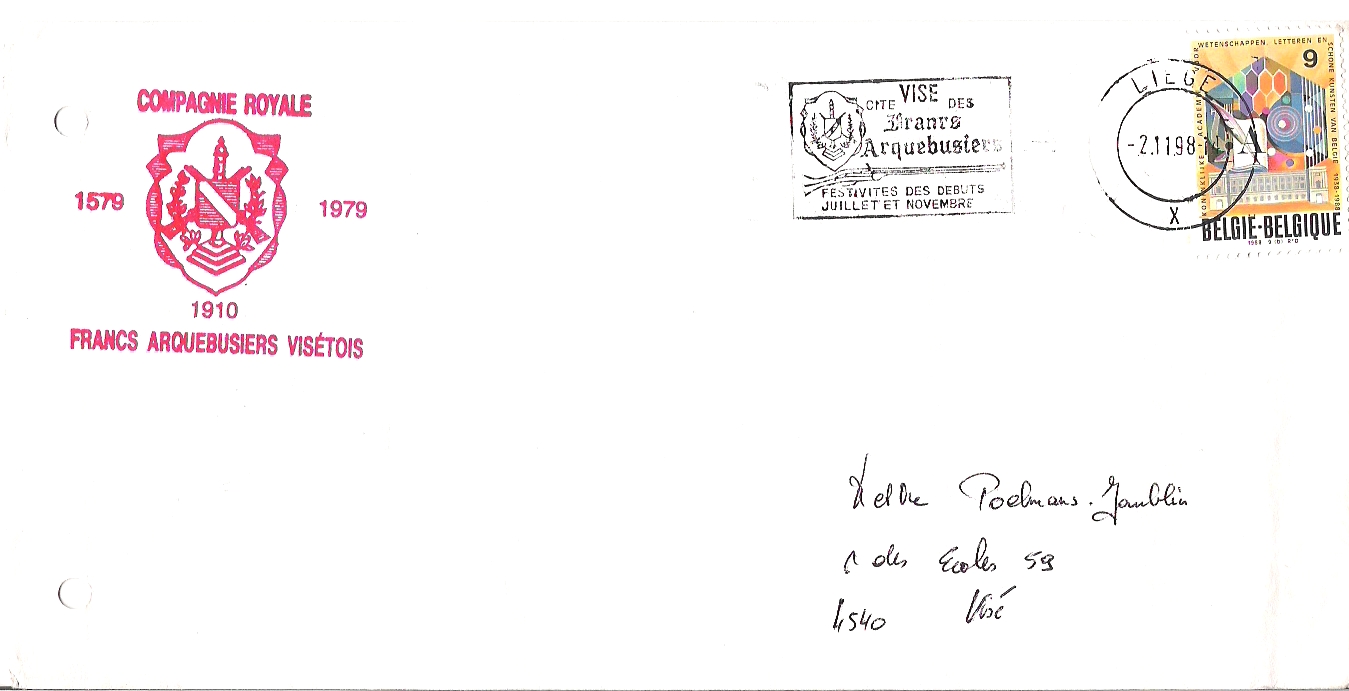 COMPAGNIE ROYALE
1579
1979
1910
FRANCS ARQUEBUSIERS VISÉTOIS
VISE
CITE DES
Francs
Arquebusiers
FESTIVITES DES DEBUTS
JUILLET ET NOVEMBRE
LIEGE
-2.11.98
A
X
WETENSCHAPPEN, LETTEREN EN
SCHONE KUNSTEN VAN BELGIE 1938-1988
KONINKLIJKE ACADEMIE VOOR
9
BELGIË-BELGIQUE
1988
M et Me Poelmans-Jamblin
r des Ecoles 59
4540 Visé